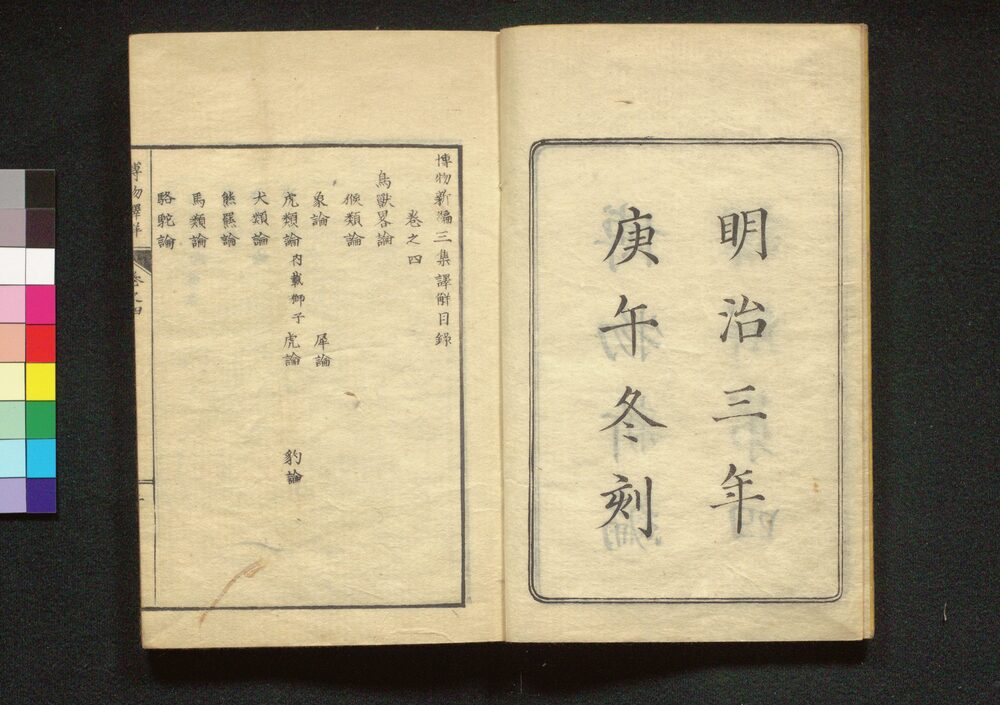 明治三年
庚午冬刻
博物新編三集譯解目録
巻之四
鳥獸畧論
猴類論
象論 犀論
虎類論 内載獅子 虎論 豹論
犬類論
熊羆論
馬類論
駱駝論
博物譯解 巻之四